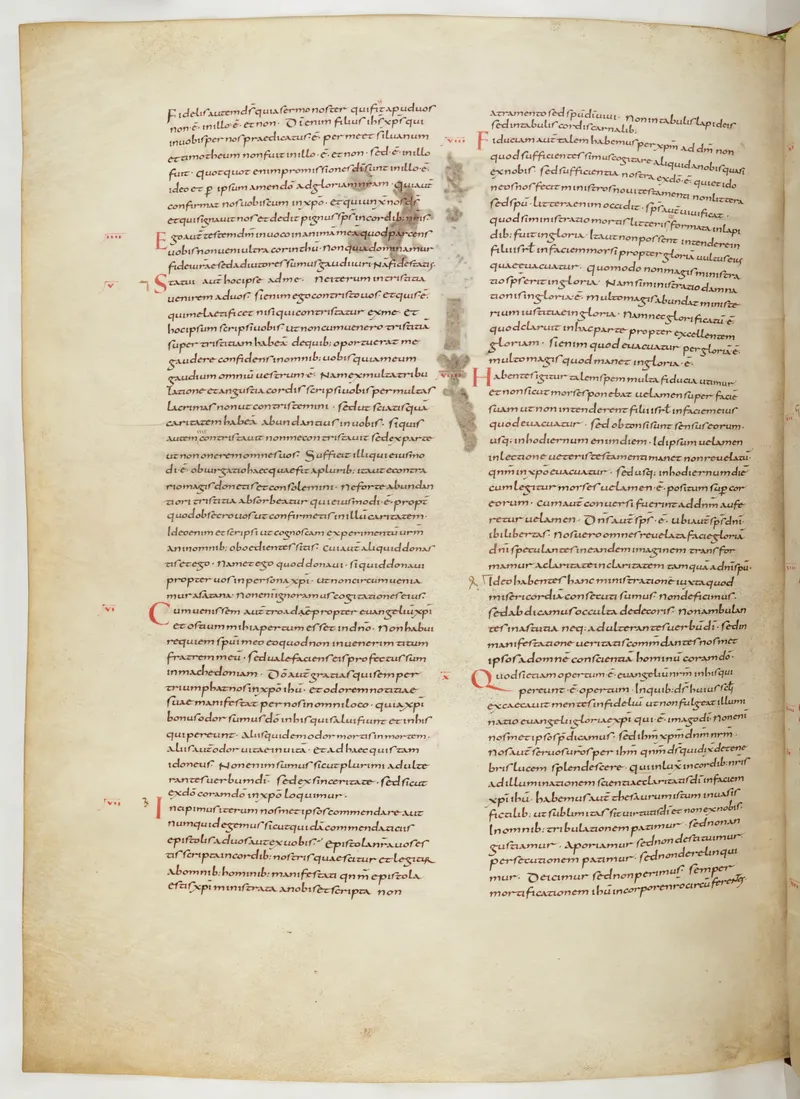 Fidelis autem ds̄ quia sermo noster qui fit apud uos
non ē in illo ē et non · Dī enim filius ihs̄ xp̄s qui
in uobis per nos praedicatus ē per me et siluanum
et timotheum non fuit in illo ē et non · sed ē in illo
fuit · quotquot enim promissiones dī sunt in illo ē
ideo et p̱ ipsum amen dō ad gloriam nr̄am · qui aut̄
confirmat nos uobiscum in xp̄o · et qui unxit nos ds̄
et qui signauit nos et dedit pignus sp̄s in cordib: nr̄is ·
iiii Ego aut̄ testem dm̄ inuoco in anima mea quod parcens
uobis non ueni ultra corinthū · Non quia dominamur
fidei urae sed adiutores sumus gaudii uri Nā fide statis
v Statui aut̄ hoc ipse ad me · Ne iterum in tristitia
uenirem ad uos · si enim ego contristo uos et quis ē
qui me laetificet nisi qui contristatur ex me · Et
hoc ipsum scripsi uobis ut non cum uenero tristitia
super tristitiam habeā de quib: oportuerat me
gaudere confidens in omnib: uobis quia meum
gaudium omniū uestrum ē · Nam ex multa tribu
latione et angustia cordis scripsi uobis per multas
lacrimas non ut contristemini · sed ut sciatis quā
caritatem habeā abundantius in uobis · si quis
autem contristauit non me contristauit sed ex parte
ut non onerem omnes uos · Sufficit illi qui eiusmo
di ē obiurgatio haec quae fit a plurib: ita ut e contra
rio magis donetis et consolemini · Ne forte abundan
tiori tristitia absorbeatur qui eiusmodi ē · propt̄
quod obsecro uos ut confirmetis in illū caritatem ·
Ideo enim et scripsi ut cognoscam experimentū urm̄
an in omnib: oboedientes sitis · Cui aut̄ aliquid donas
tis et ego · Nam et ego quod donaui · si quid donaui
propter uos in persona xp̄i · ut non circumuenia
mur a satana · Non enī ignoramus cogitationes eius
vi Cum uenissem aut̄ troadā propter euangeliū xp̄i
et ostium mihi apertum esset in dn̄o · Non habui
requiem sp̄ui meo eo quod non inuenerim titum
fratrem meū · sed uale faciens eis profectus sum
in machedoniam · Dō aut̄ gratias qui semper
triumphat nos in xp̄o ihū · et odorem notitiae
suae manifestat per nos in omni loco · quia xp̄i
bonus odor sumus dō in his qui salui fiunt et in his
qui pereunt · Aliis quidem odor mortis in mortem ·
aliis aut̄ odor uitae in uitā · et ad haec quis tam
idoneus · Non enim sumus sicut plurimi adulte
rantes uerbum dī · sed ex sinceritate · sed sicut
ex dō coram dō in xp̄o loquimur ·
vii Incipimus iterum nosmet ipsos commendare aut
numquid egemus sicut quidā commendaticiis
epistolis ad uos aut ex uobis · Epistola nr̄a uos es
tis scripta in cordib: nostris quae scitur et legitur
ab omnib: hominib: manifestati qnm̄ epistola
estis xp̄i ministrata a nobis et scripta non
atramento sed sp̄u dī uiui · Non in tabulis lapideis
sed in tabulis cordis carnalib ·
viii Fiduciam aut̄ talem habemus per xp̄m ad dm̄ non
quod sufficientes simus cogitare aliquid a nobis quasi
ex nobis · sed sufficientia nostra ex dō ē · qui et ido
neos nos fecit ministros noui testamenti non littera
sed sp̄u · littera enim occidit · sp̄s aut̄ uiuificat ·
quod si ministratio mortis litteris formata in lapi
dib: fuit in gloria · Ita ut non possent intendere in
filii isrl̄ in faciem morsi propter gloriā uultus eius
quae euacuatur · quomodo non magis ministra
tio sp̄s erit in gloria · Nam si ministratio damna
tionis in gloria ē · multo magis abundat ministe
rium iustitiae in gloria · Nam nec glorificatū ē
quod claruit in hac parte propter excellentem
gloriam · si enim quod euacuatur per gloriā ē
multo magis quod manet in gloria ē ·
viiii Habentes igitur talem spem multa fiducia utimur
et non sicut morses ponebat uelamen super facie
suam ut non intenderent filii isrl̄ in faciem eius
quod euacuatur · sed obtonsi sunt sensus eorum ·
usq: in hodiernum enim diem · Id ipsum uelamen
in lectione ueteris testamenti manet non reuelatū
qnm̄ in xp̄o euacuatur · sed usq: in hodiernum diē
cum legitur morses uelamen ē positum sup̱ cor
eorum · cum aut̄ conuersi fuerint ad dn̄m aufe
retur uelamen · Dn̄s aut̄ sp̄s ē · ubi aut̄ sp̄s dn̄i ·
ibi libertas · Nos uero omnes reuelata facie gloriā
dn̄i speculantes in eandem imaginem transfor
mamur a claritate in claritatem tamquā a dn̄i sp̄u ·
Ideo habentes hanc ministrationē iuxta quod
misericordiā consecuti sumus · Non deficimus ·
sed abdicamus occulta dedecoris · Non ambulan
tes in astutia neq: adulterantes uerbū dī · sed in
manifestatione ueritatis commdantes nosmet
ipsos ad omnē conscientiā hominū coram dō ·
x Quod si etiam opertum ē euangeliū nrm̄ in his qui
pereunt ē opertum · In quib: ds̄ huius scl̄i
excaecauit mentes infideliū ut non fulgeat illumi
natio euangelii gloriae xp̄i qui ē imago dī · Non enī
nosmet ipsos p̄dicamus · sed ihm̄ xp̄m dn̄m nrm̄ ·
Nos aut̄ seruos uros per ihm̄ qnm̄ ds̄ qui dix̄ de tene
bris lucem splendescere · qui inlux̄ in cordib: nris
ad illuminationem scientiae claritatis dī in faciem
xp̄i ihū · habemus aut̄ thesaurum istum in uasis
fictilib: ut sublimitas sit uirtutis dī et non ex nobis ·
In omnib: tribulationem patimur · sed non an
gustiamur · Aporiamur sed non destituimur
persecutionem patimur · sed non derelinqui
mur · Deicimur sed non perimus · semper
mortificationem ihū in corpore nro circūferentes